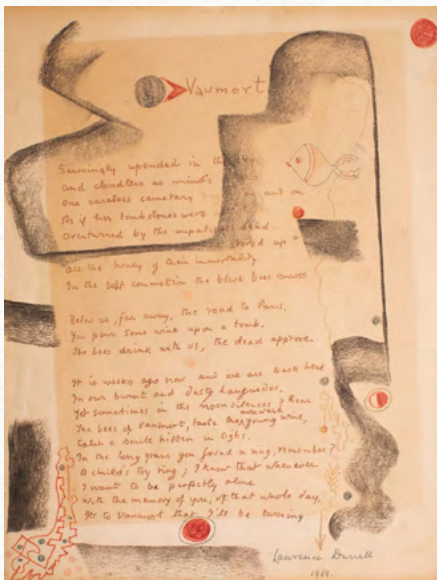 Vaumort
Seemingly upended in the sky,
and cloudless as minds
one careless cemetery buzzes on and on
As if her tombstones were
overturned by the impatient dead.
stored up
all the honey of their immortality
In the soft commotion the black bees make
Below us, far away, the road to Paris,
You pour some wine upon a tomb.
The bees drink with us, the dead approve.
It is weeks ago now and we are back here
In our burnt and dusty Languedoc,
Yet sometimes in the noon silences, I hear
The bees of Vaumort, taste the young wine,
Catch a smile hidden in sighs.
In the long grass you found a ring, remember?
A child's toy ring; I know that whenever
I want to be perfectly alone
With the memory of you, of that whole day,
It's to Vaumort that I'll be turning
Lawrence Durrell
1969.